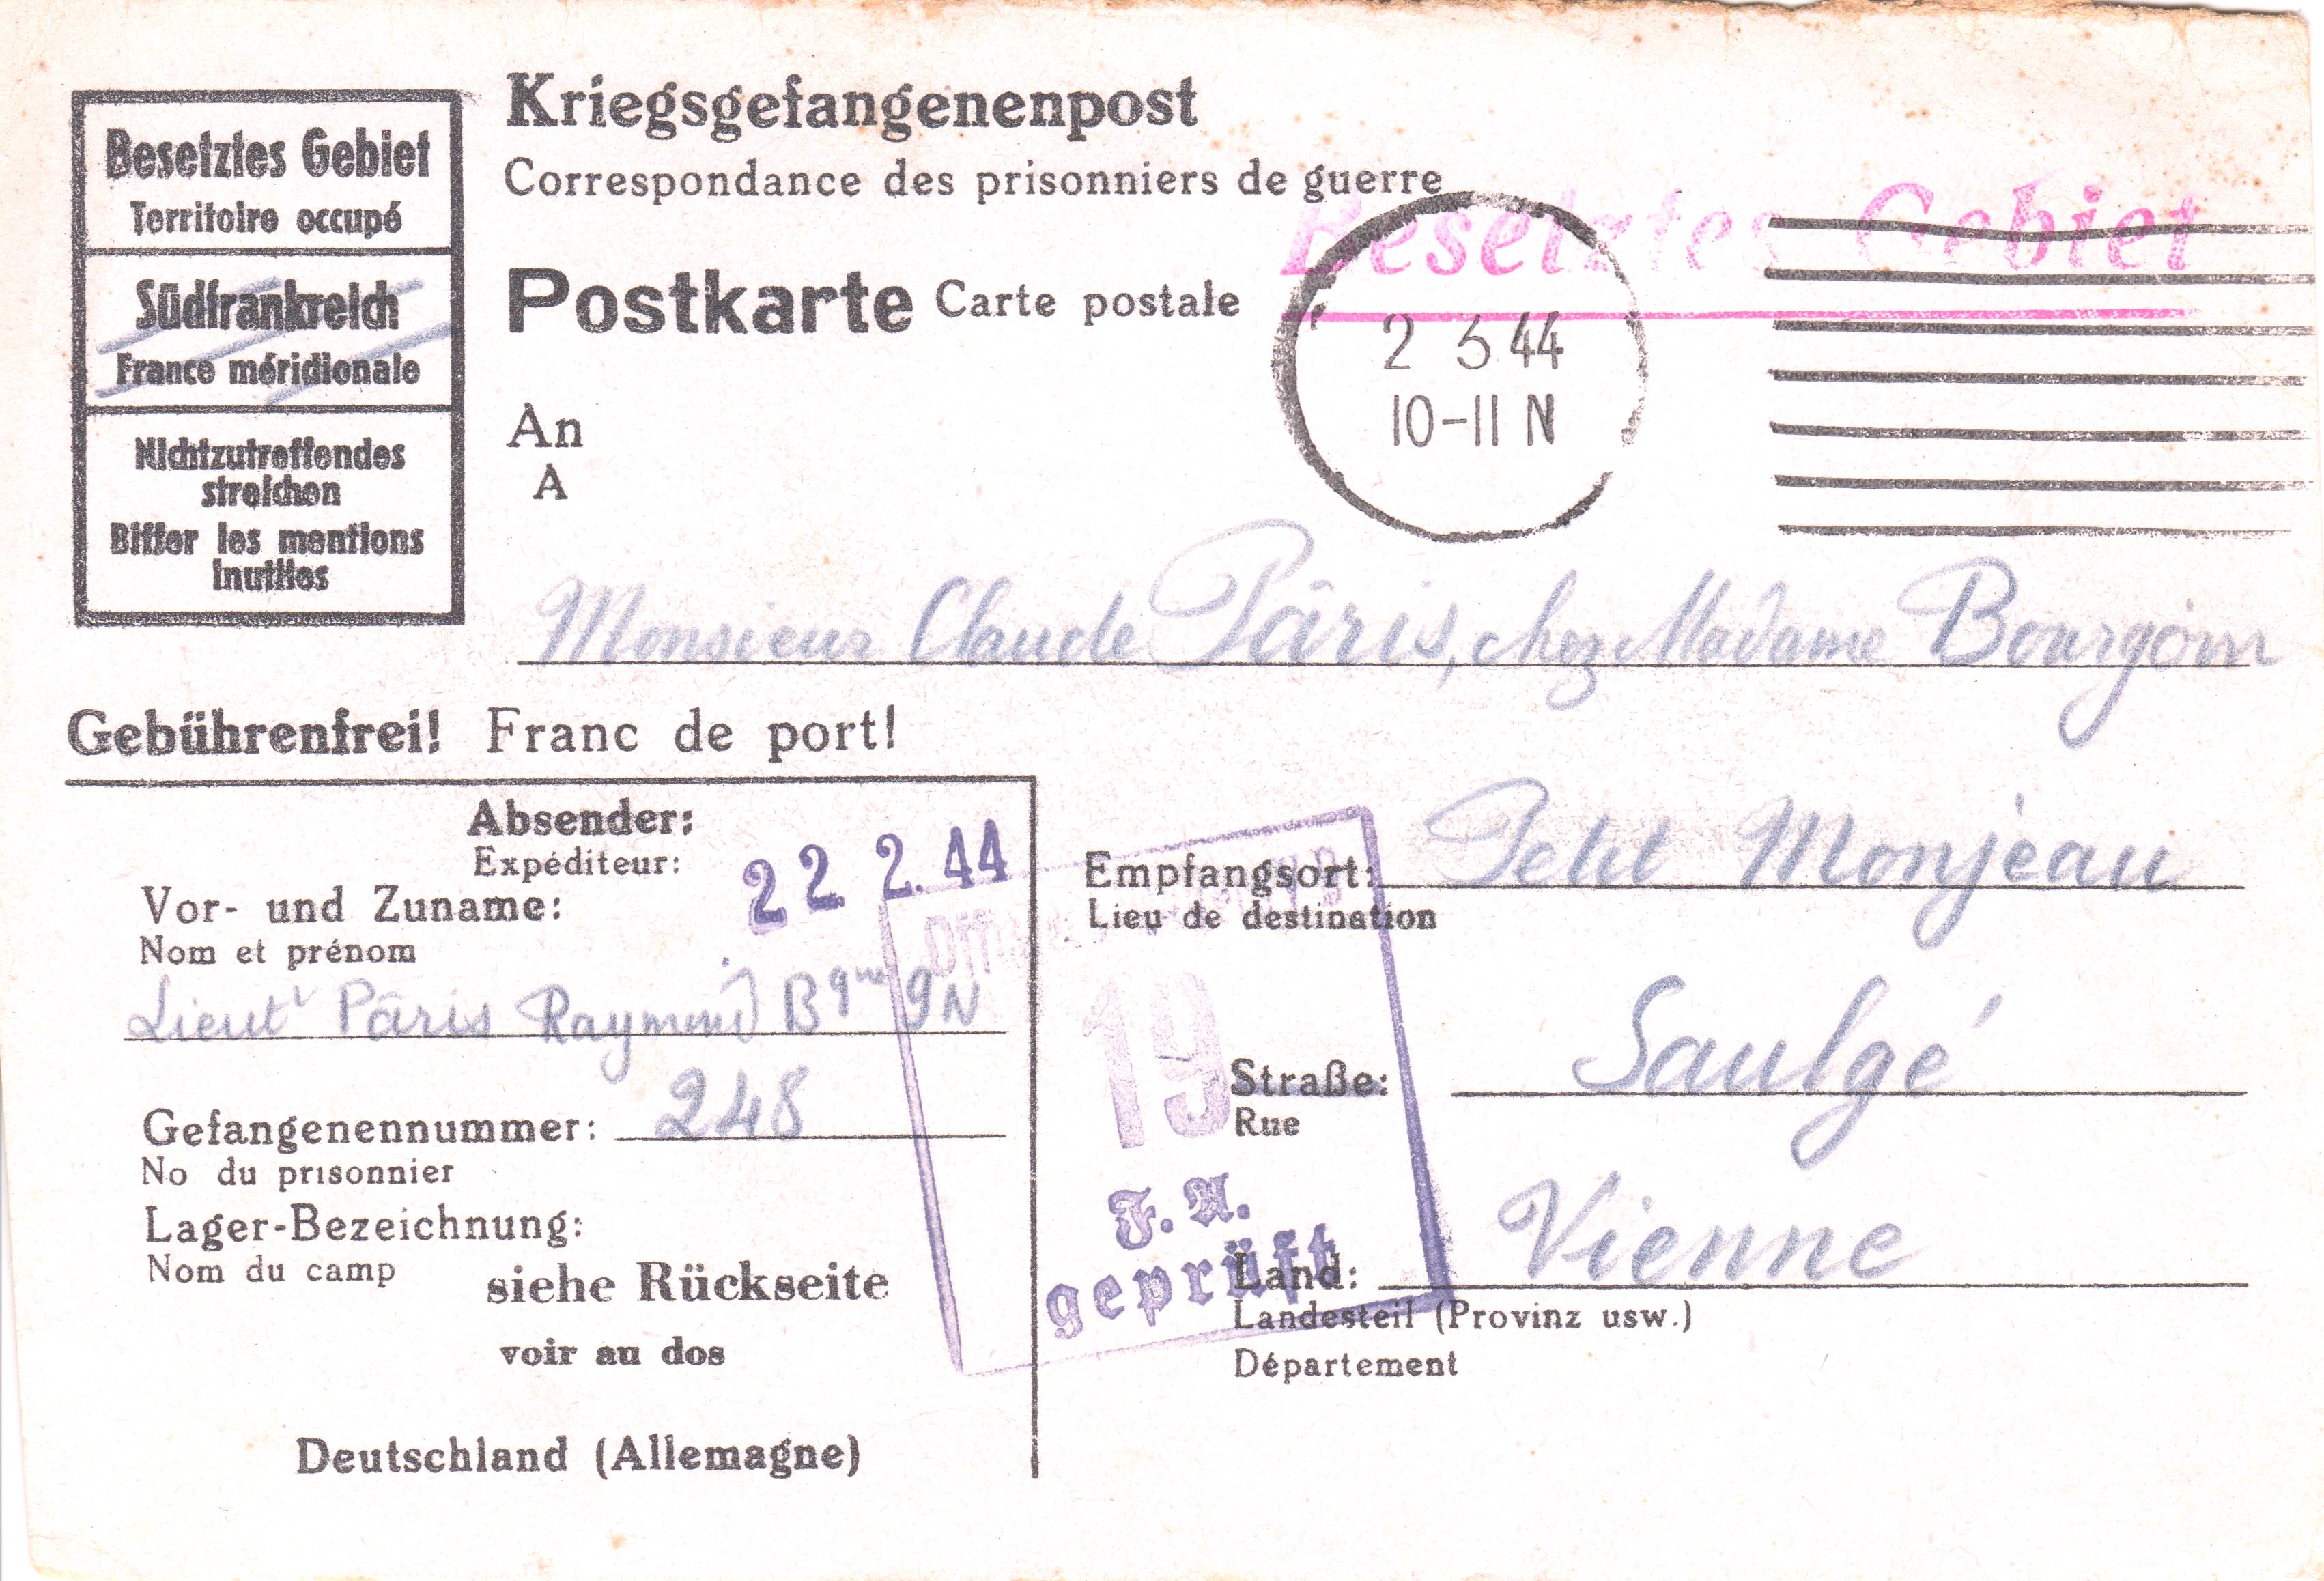 Besetztes Gebiet
Territoire occupé
Südfrankreich
France méridionale
Nichtzutreffendes
streichen
Biffer les mentions
inutiles
Kriegsgefangenenpost
Correspondance des prisonniers de guerre
Besetztes Gebiet
Postkarte Carte postale
2 3 44
10-11 N
An
A
Monsieur Claude Pâris, chez Madame Bourgoin
Gebührenfrei! Franc de port!
Absender:
Expéditeur:
22 2. 44
Vor- und Zuname:
Nom et prénom
Lieutt Pâris Raymond Bque 9N
Gefangenennummer: 248
No du prisonnier
Lager-Bezeichnung:
Nom du camp
siehe Rückseite
voir au dos
Deutschland (Allemagne)
Empfangsort: Petit Monjeau
Lieu de destination
19
Straße: Saulgé
Rue
F. A.
geprüft
Land: Vienne
Landesteil (Provinz usw.)
Département